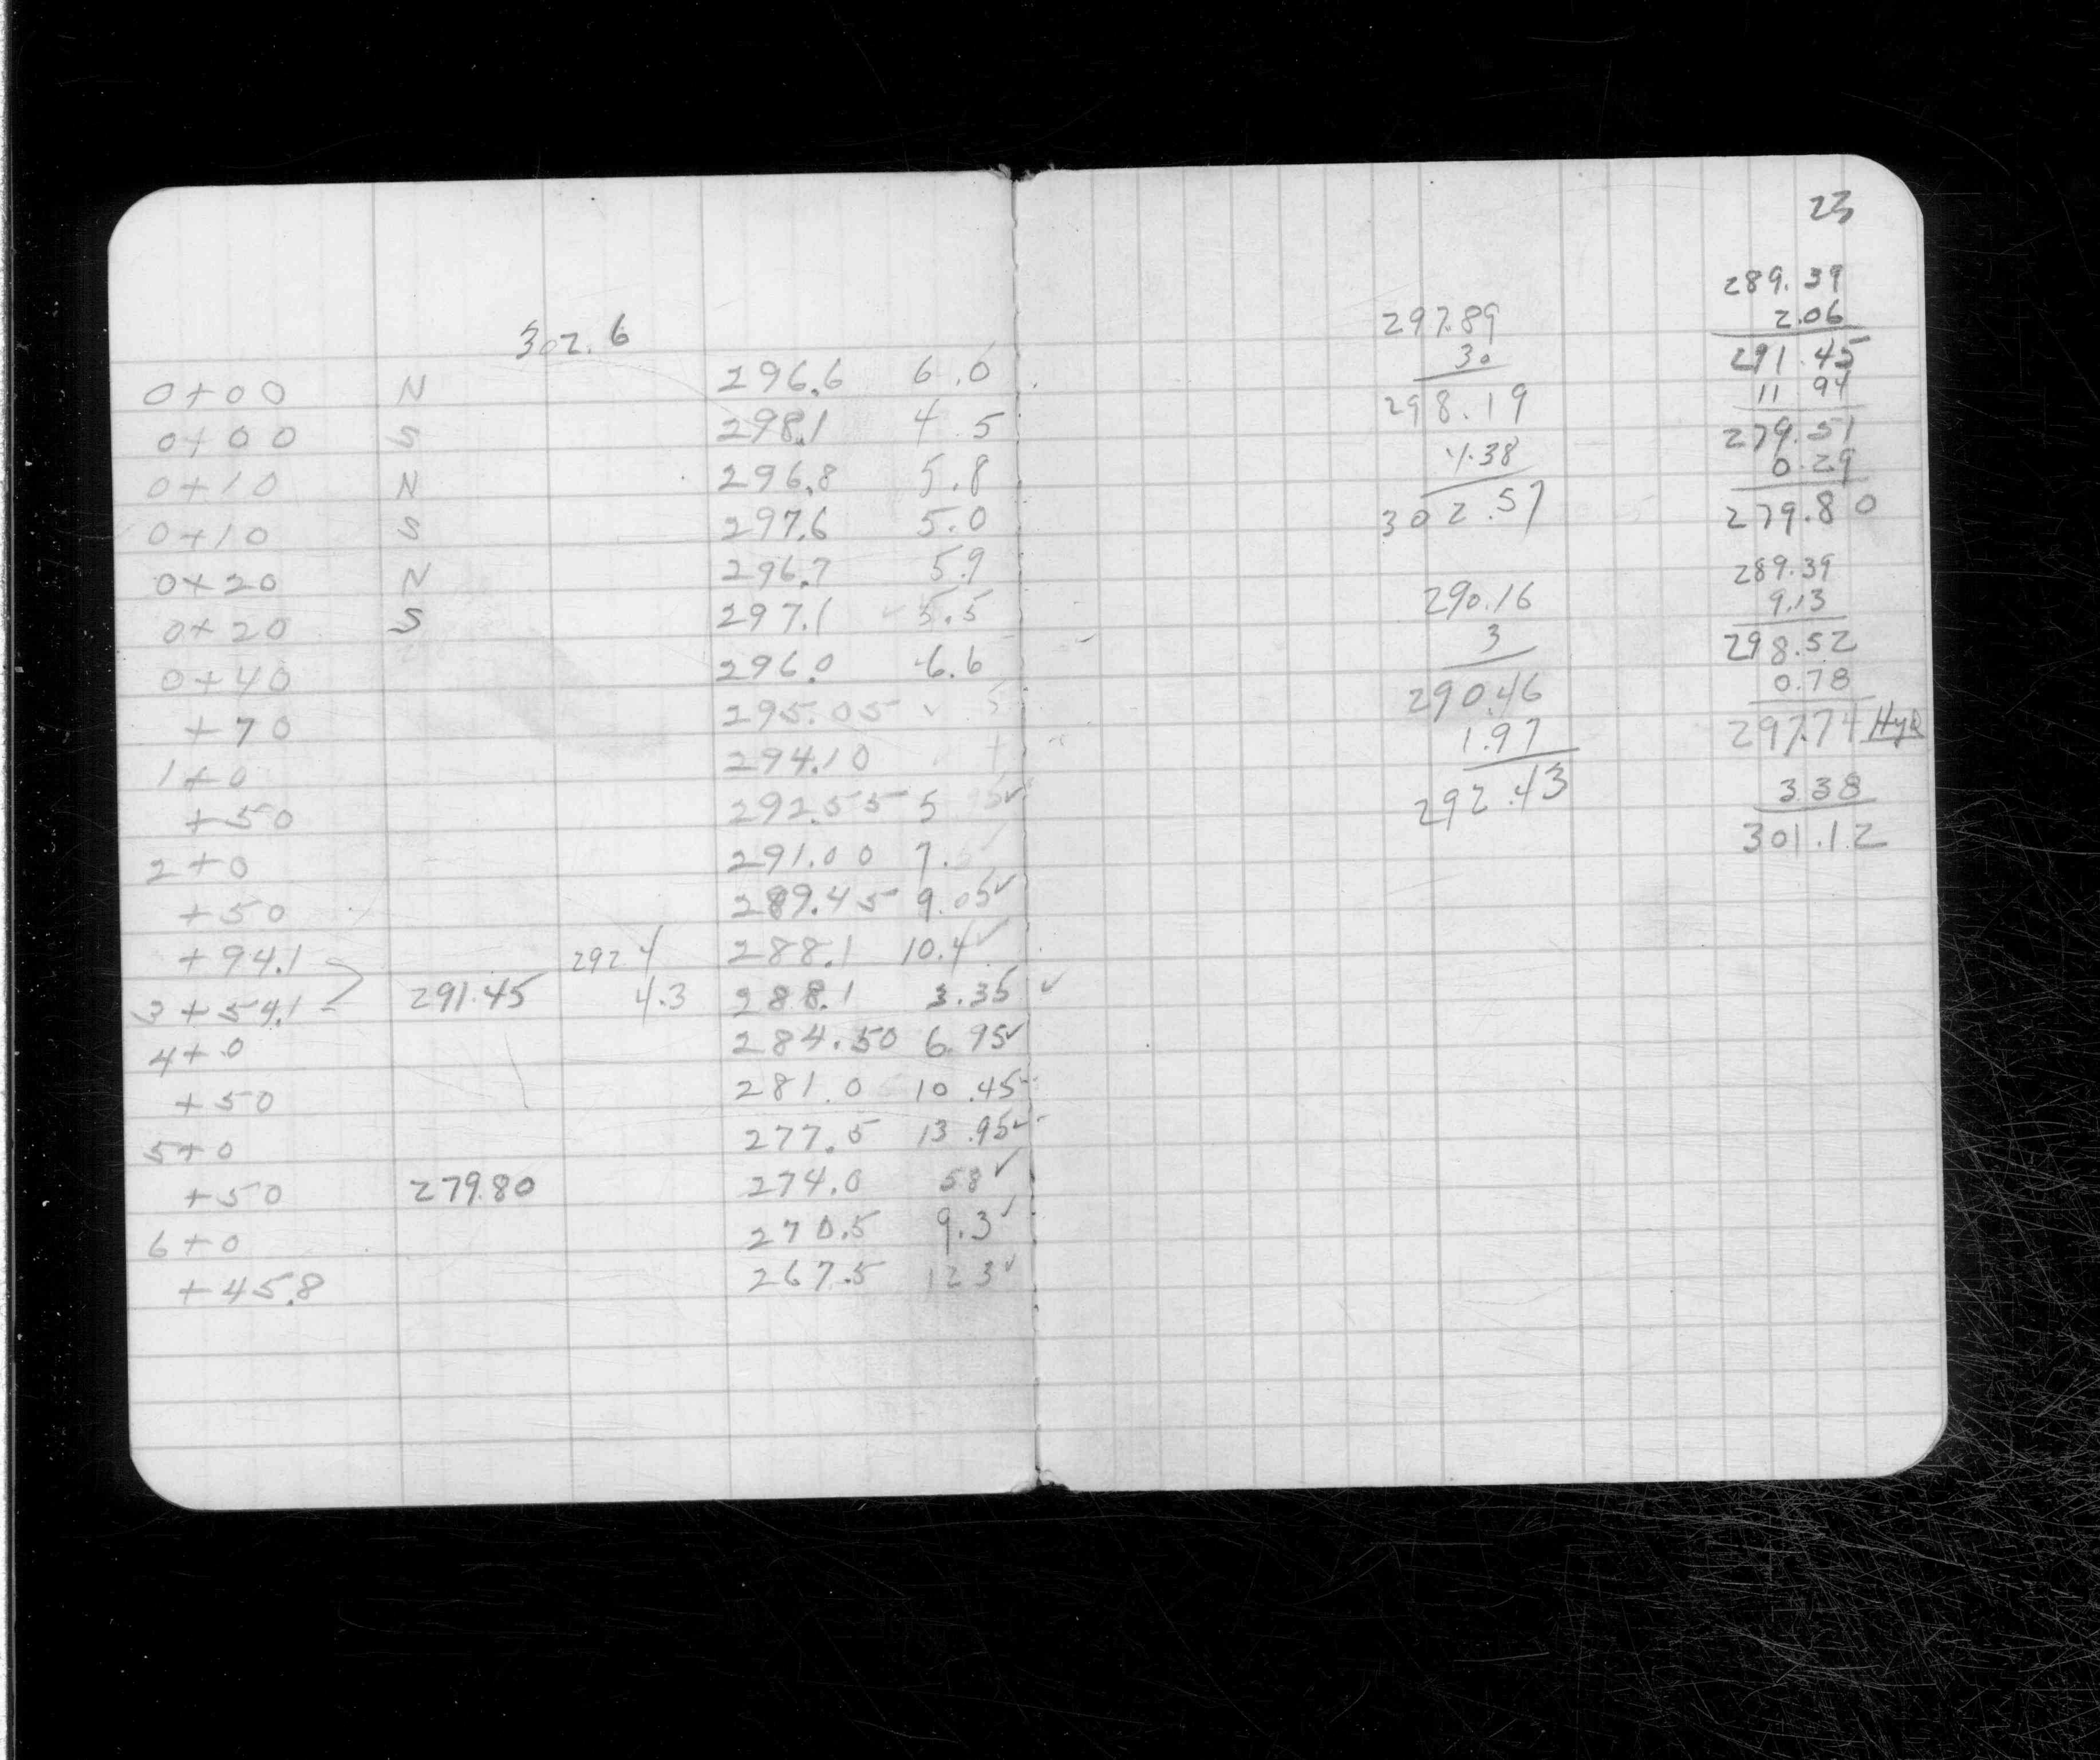 302.6
0+00 N 296.6 6.0
0+00 S 298.1 4.5
0+10 N 296.8 5.8
0+10 S 297.6 5.0
0+20 N 296.7 5.9
0+20 S 297.1 5.5
0+40 296.0 6.6
+70 295.05 ✓
1+0 294.10
+50 292.55 5 ✓
2+0 291.00 7. ✓
+50 289.45 9.05 ✓
+94.1 292 4 288.1 10.4 ✓
3+54.1 291.45 4.3 288.1 3.35 ✓
4+0 284.50 6.95 ✓
+50 281.0 10.45
5+0 277.5 13.95 ✓
+50 279.80 274.0 58 ✓
6+0 270.5 9.3 ✓
+45.8 267.5 12 3 ✓
23
297.89
30
298.19
4.38
302.57
290.16
3
290.46
1.97
292.43
289.39
2.06
291.45
11 94
279.51
0.29
279.80
289.39
9.13
298.52
0.78
297.74 Hyd
3.38
301.12